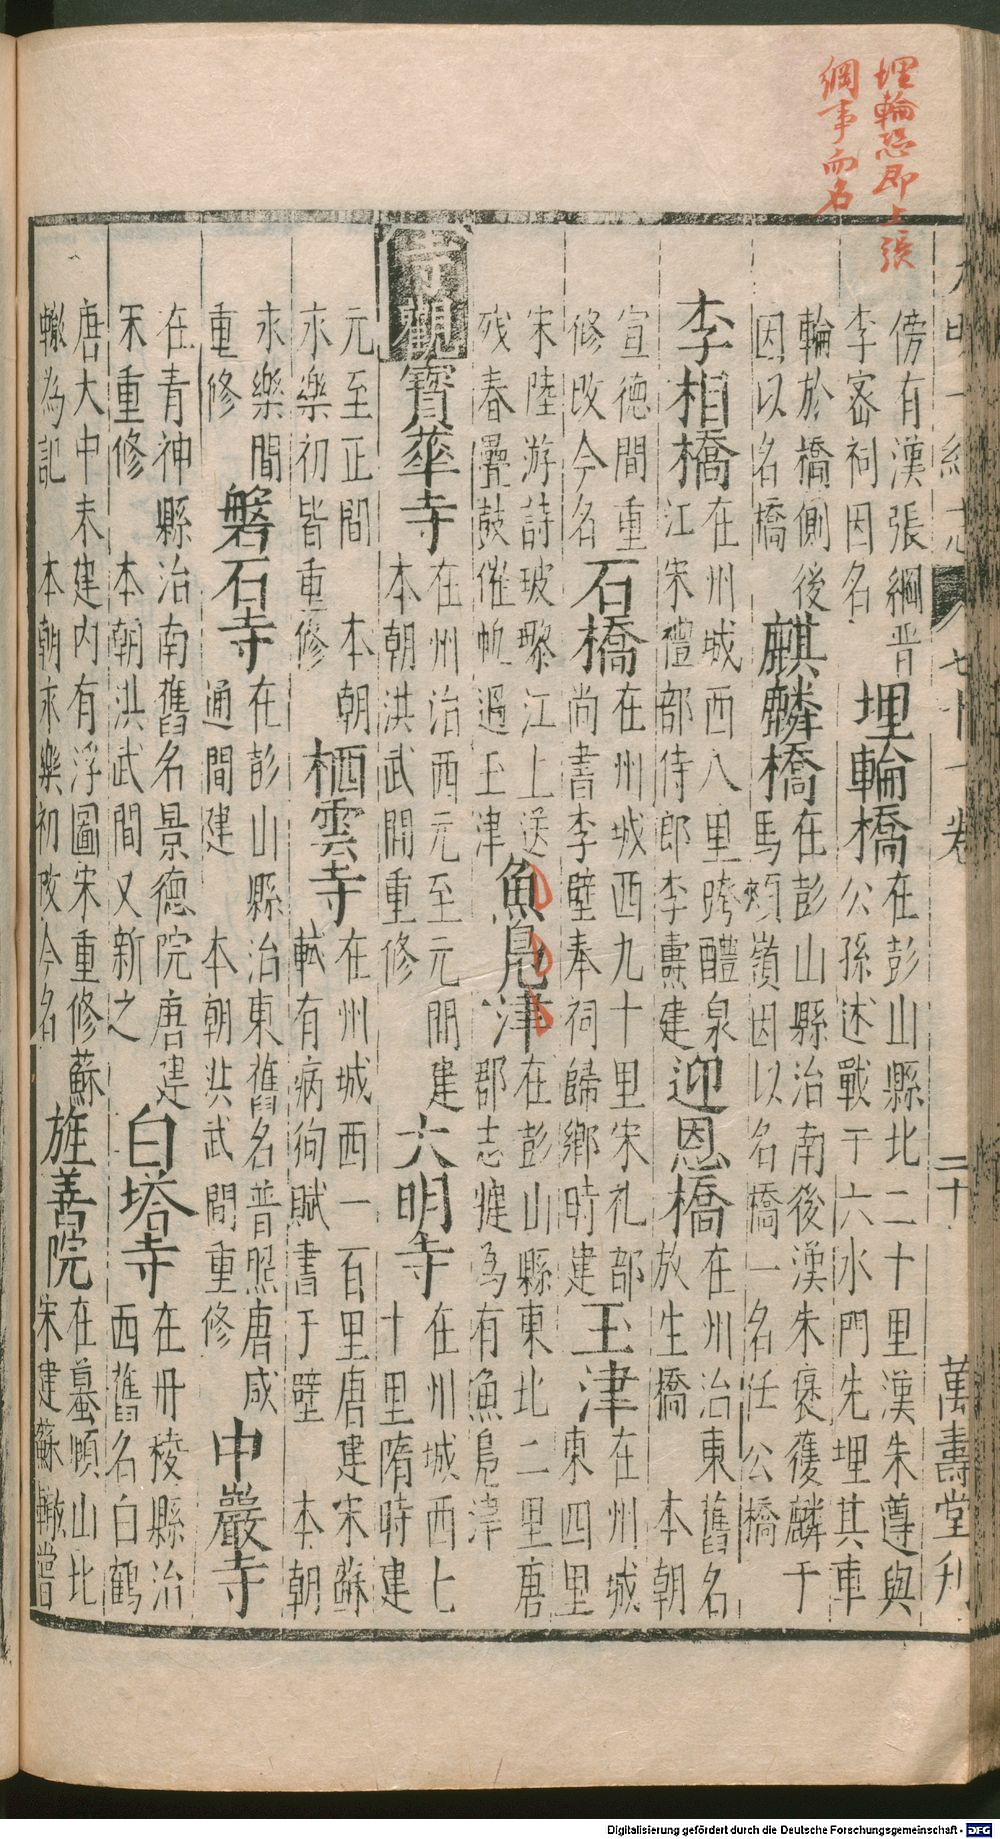 埋輪恐即上張
綱事而名
大明一統志 卷七十一卷 二十 萬壽堂刋
傍有漢張綱晋
李密祠因名
埋輪橋
在彭山縣北二十里漢朱遵與
公孫述戰于六水門先埋其車
輪於橋側後
因以名橋
麒麟橋
在彭山縣治南後漢朱褒獲麟于
馬頰嶺因以名橋一名任公橋
李相橋
在州城西八里跨醴泉
江宋禮部侍郎李燾建
迎恩橋
在州治東舊名
放生橋 本朝
宣德間重
修改今名
石橋
在州城西九十里宋礼部
尚書李壁奉祠歸鄉時建
玉津
在州城
東四里
宋陸游詩玻瓈江上送
残春疊鼓催帆過玉津
魚鳧津
在彭山縣東北二里唐
郡志犍為有魚鳧津
寺觀
寶華寺
在州治西元至元間建
本朝洪武間重修
大明寺
在州城西七
十里隋時建
元至正間 本朝
永樂初皆重修
栖雲寺
在州城西一百里唐建宋蘇
軾有病狗賦書于壁 本朝
永樂間
重修
磐石寺
在彭山縣治東舊名普照唐咸
通間建 本朝洪武間重修
中巖寺
在青神縣治南舊名景德院唐建
宋重修 本朝洪武間又新之
白塔寺
在丹稜縣治
西舊名白鶴
唐大中末建内有浮圖宋重修蘇
轍為記 本朝永樂初改今名
旌善院
在蟇頥山北
宋建蘇轍嘗
Digitalisierung gefördert durch die Deutsche Forschungsgemeinschaft - DFG